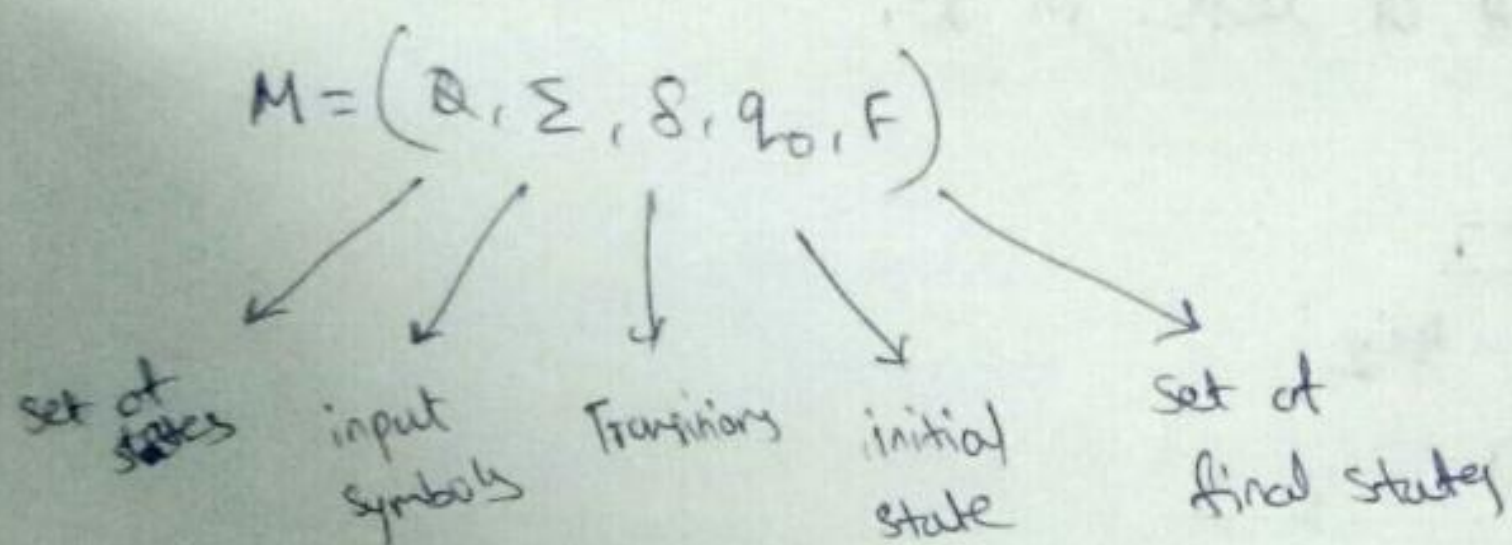 M = (Q, Σ, δ, q₀, F)
set of states
input symbols
Transitions
initial state
set of final states